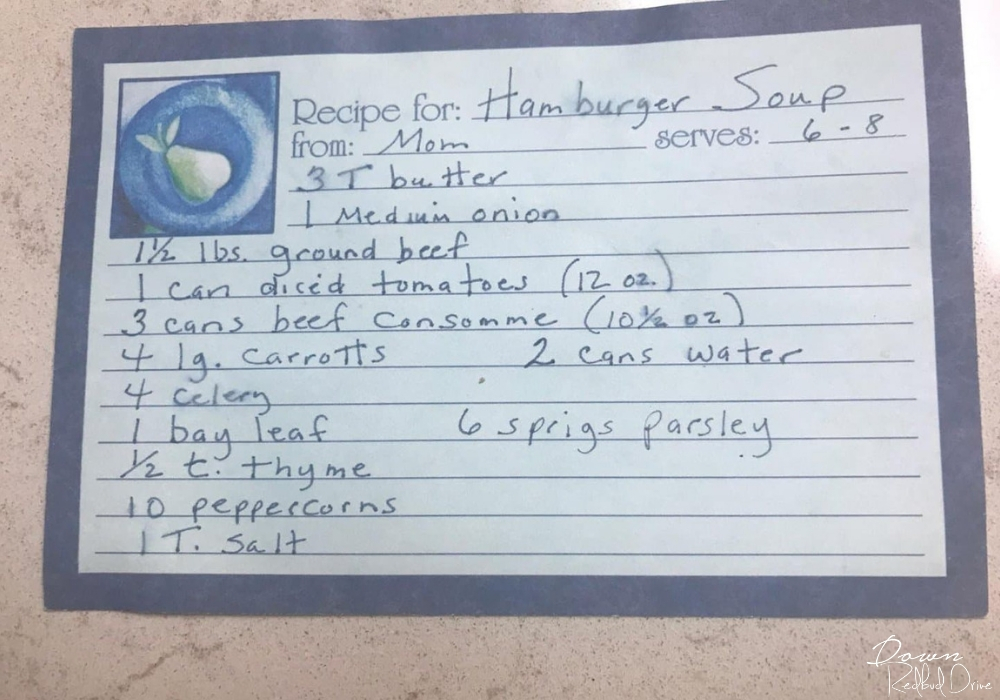 Recipe for: Hamburger Soup
from: Mom serves: 6 - 8
3 T butter
1 Medium onion
1½ lbs. ground beef
1 can diced tomatoes (12 oz.)
3 cans beef consomme (10½ oz)
4 lg. carrotts 2 cans water
4 celery
1 bay leaf 6 sprigs parsley
½ t. thyme
10 peppercorns
1 T. salt
Down
Redbud Drive